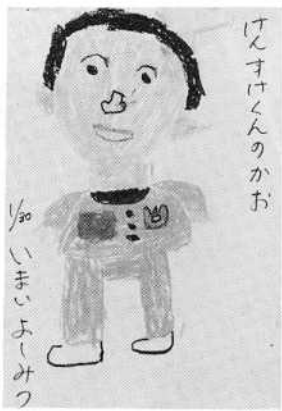 けんすけくんのかお
1/30 いまいよしみつ